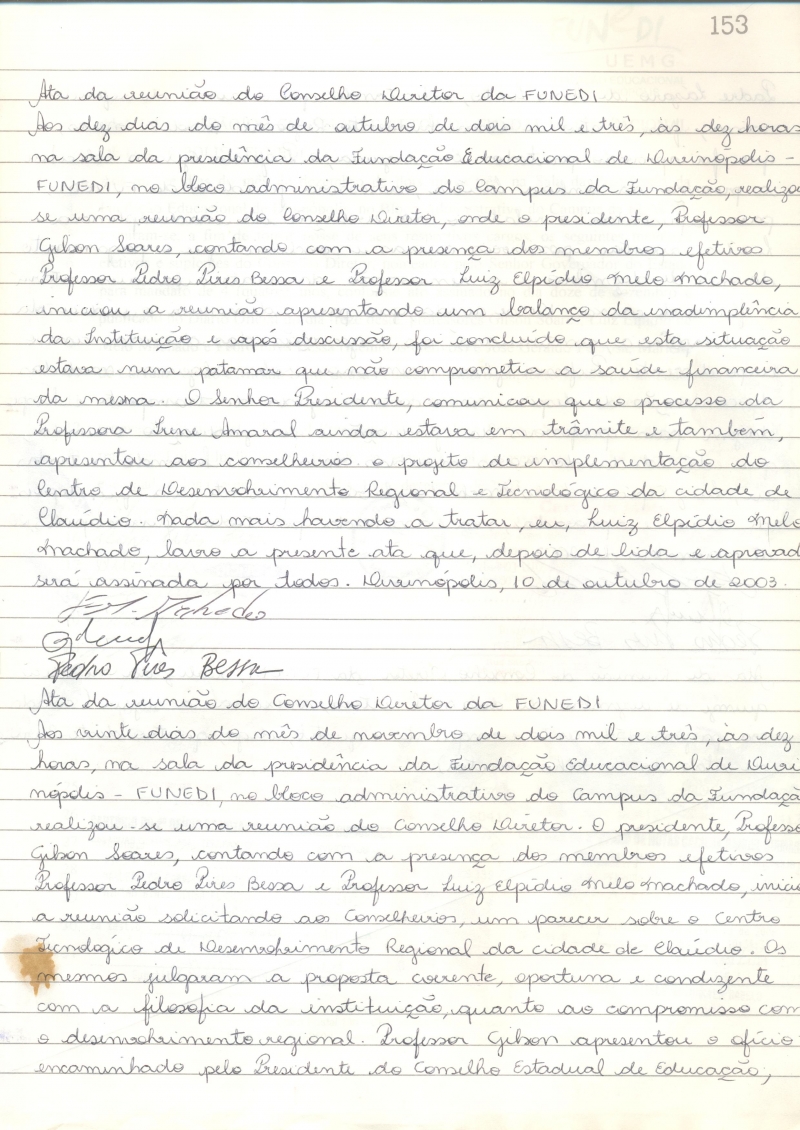 153
Ata da reunião do Conselho Diretor da FUNEDI
Aos dez dias do mês de outubro de dois mil e três, às dez horas
na sala da presidência da Fundação Educacional de Divinópolis -
FUNEDI, no bloco administrativo do Campus da Fundação, realizou
se uma reunião do Conselho Diretor, onde o presidente, Professor
Gilson Soares, contando com a presença dos membros efetivos
Professor Pedro Pires Bessa e Professor Luiz Elpídio Melo Machado,
iniciou a reunião apresentando um balanço da inadimplência
da Instituição e após discussão, foi concluído que esta situação
estava num patamar que não comprometia a saúde financeira
da mesma. O Senhor Presidente, comunicou que o processo da
Professora Irene Amaral ainda estava em trâmite e também,
apresentou aos conselheiros o projeto de implementação do
Centro de Desenvolvimento Regional e Tecnológico da cidade de
Claúdio. Nada mais havendo a tratar, eu, Luiz Elpídio Melo
Machado, lavro a presente ata que, depois de lida e aprovad
será assinada por todos. Divinópolis, 10 de outubro de 2003.
Pedro Pires Bessa
Ata da reunião do Conselho Diretor da FUNEDI
Aos vinte dias do mês de novembro de dois mil e três, às dez
horas, na sala da presidência da Fundação Educacional de Divi
nópolis - FUNEDI, no bloco administrativo do Campus da Fundaçã
realizou-se uma reunião do Conselho Diretor. O presidente, Profess
Gilson Soares, contando com a presença dos membros efetivos
Professor Pedro Pires Bessa e Professor Luiz Elpídio Melo Machado, inici
a reunião solicitando aos Conselheiros, um parecer sobre o Centro
Tecnológico de Desenvolvimento Regional da cidade de Claúdio. Os
mesmos julgaram a proposta coerente, oportuna e condizente
com a filosofia da instituição, quanto ao compromisso com
o desenvolvimento regional. Professor Gilson apresentou o ofício
encaminhado pelo Presidente do Conselho Estadual de Educação,